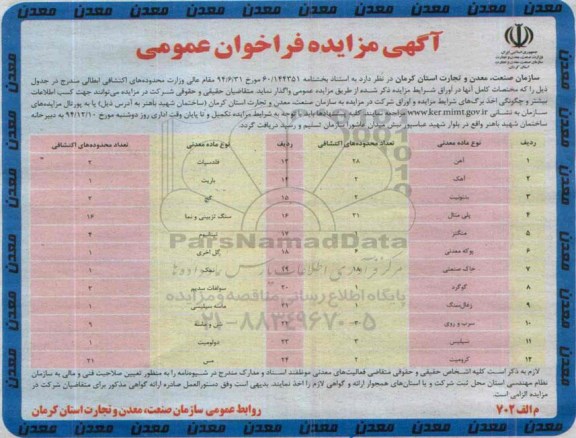 معدن معدن معدن معدن معدن معدن معدن
آگهی مزایده فراخوان عمومی
سازمان صنعت، معدن و تجارت استان کرمان در نظر دارد به استناد بخشنامه ۶۰/۱۴۴۳۵۱ مورخ ۹۴/۶/۳۱ مقام عالی وزارت محدوده‌های اکتشافی ابطالی مندرج در جدول
ذیل را که مختصات کامل آنها در اوراق شرایط مزایده ذکر شده از طریق مزایده عمومی واگذار نماید. متقاضیان حقیقی و حقوقی شرکت در مزایده می‌توانند جهت کسب اطلاعات
بیشتر و چگونگی اخذ برگ‌های شرایط مزایده و اوراق شرکت در مزایده به سازمان صنعت، معدن و تجارت استان کرمان (ساختمان شهید باهنر به آدرس ذیل) یا به پورتال مزایده‌های
سازمان به نشانی www.ker.mimt.gov.ir مراجعه نمایند. پیشنهادها باید با توجه به شرایط مزایده تکمیل و تا پایان وقت اداری روز دوشنبه مورخ ۹۴/۱۲/۱۰ به دبیرخانه
ساختمان شهید باهنر واقع در بلوار شهید عباسپور سازمان تسلیم و رسید دریافت گردد.
ردیف نوع ماده معدنی تعداد محدوده‌های اکتشافی ردیف نوع ماده معدنی تعداد محدوده‌های اکتشافی
۱ آهن ۲۸ ۱۳ فلدسپات ۲
۲ آهک ۲ ۱۴ باریت ۱
۳ بنتونیت ۲ ۱۵ گچ
۴ پلی متال ۳۱ ۱۶ سنگ تزیینی و نما ۱۶
۵ منگنز ۱ ۱۷ تیتانیوم
۶ پوکه معدنی ۱۸ گل آخری ۱
۷ خاک صنعتی ۱۸ ۱۹ نمک
۸ گوگرد ۱ ۲۰ سولفات سدیم
۹ زغال‌سنگ ۱ ۲۱ ماسه سیلیسی
۱۰ سرب و روی ۲۲ شن و ماسه ۹
۱۱ سیلیس ۳ ۲۳ دولومیت ۱
۱۲ کرومیت ۲ ۲۴ مس ۳۱
ParsNamadData
پایگاه اطلاع رسانی مناقصه و مزایده
۰۲۱-۸۸۳۴۹۶۷۰-۵
لازم به ذکر است کلیه اشخاص حقیقی و حقوقی متقاضی فعالیت‌های معدنی موظفند اسناد و مدارک مندرج در شیوه‌نامه را به منظور تعیین صلاحیت فنی و مالی به سازمان
نظام مهندسی استان محل ثبت شرکت و یا استان‌های همجوار ارائه و گواهی لازم را اخذ نمایند. بدیهی است وفق دستورالعمل صادره ارائه گواهی مذکور برای متقاضیان شرکت در
مزایده الزامی است.
م الف ۷۰۲
روابط عمومی سازمان صنعت، معدن و تجارت استان کرمان
معدن معدن معدن معدن معدن معدن معدن